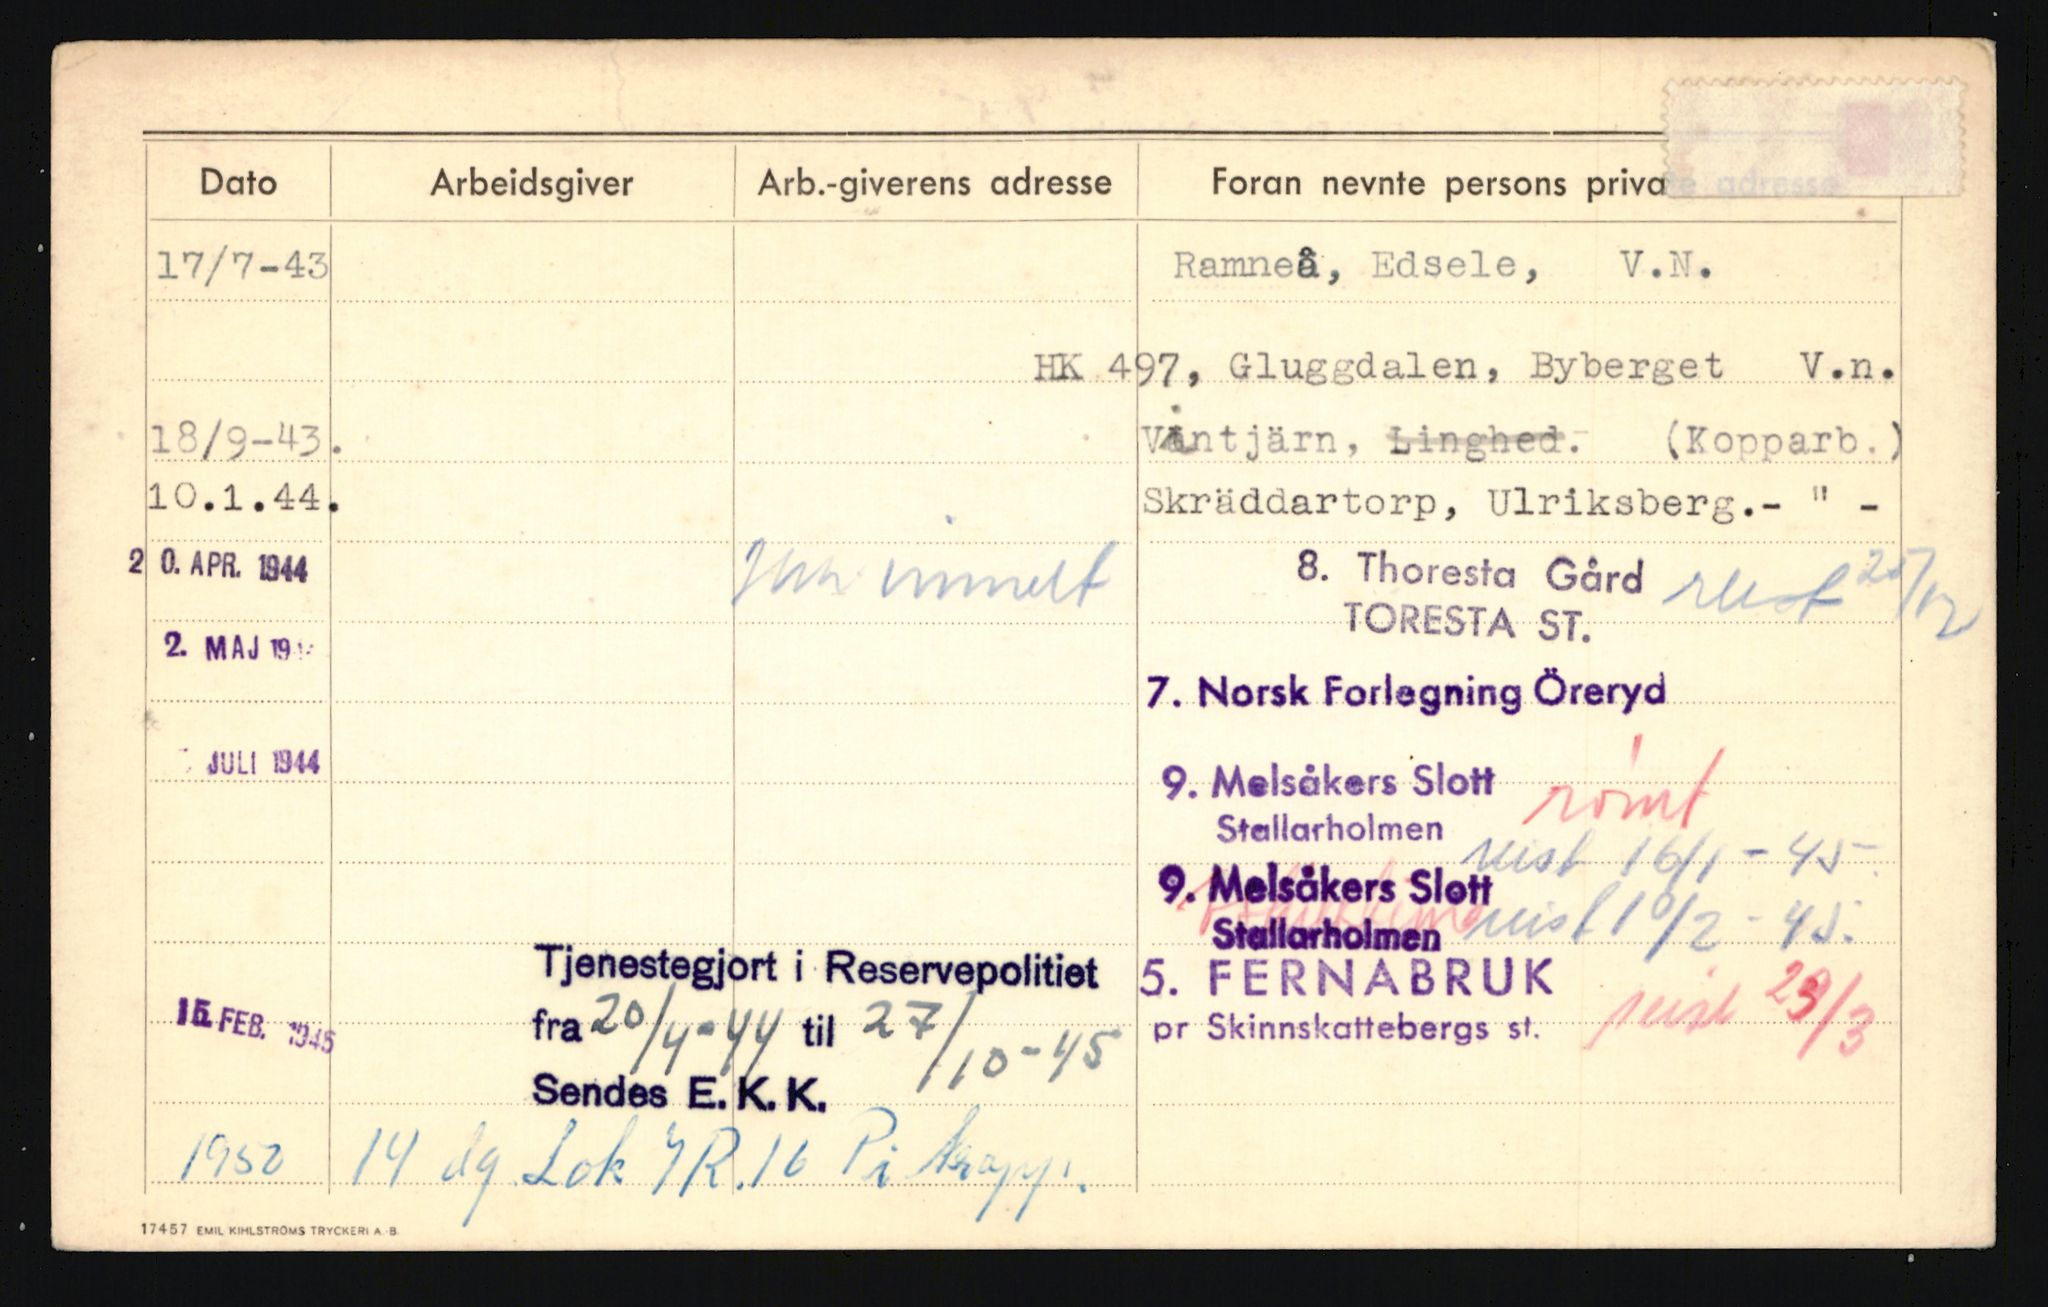 Dato Arbeidsgiver Arb.-giverens adresse Foran nevnte persons private adresse
17/7-43 Ramneå, Edsele, V.N.
HK 497, Gluggdalen, Byberget V.n.
18/9-43. Vintjärn, Linghed. (Kopparb.)
10.1.44. Skräddartorp, Ulriksberg.- " -
20. APR. 1944 innmelt 8. Thoresta Gård reist 20/12
TORESTA ST.
2. MAJ 19
7. Norsk Forlegning Öreryd
JULI 1944
9. Melsåkers Slott rømt
Stallarholmen
reist 16/1-45.
9. Melsåkers Slott
reist 10/2-45.
Stallarholmen
Tjenestegjort i Reservepolitiet 5. FERNABRUK
15. FEB. 1945 fra 20/4-44 til 27/10-45 pr Skinnskattebergs st. reist 29/3
Sendes E. K. K.
1950 14 dg. Lok IR.16 Pi tropp.
17457 EMIL KIHLSTRÖMS TRYCKERI A.-B.